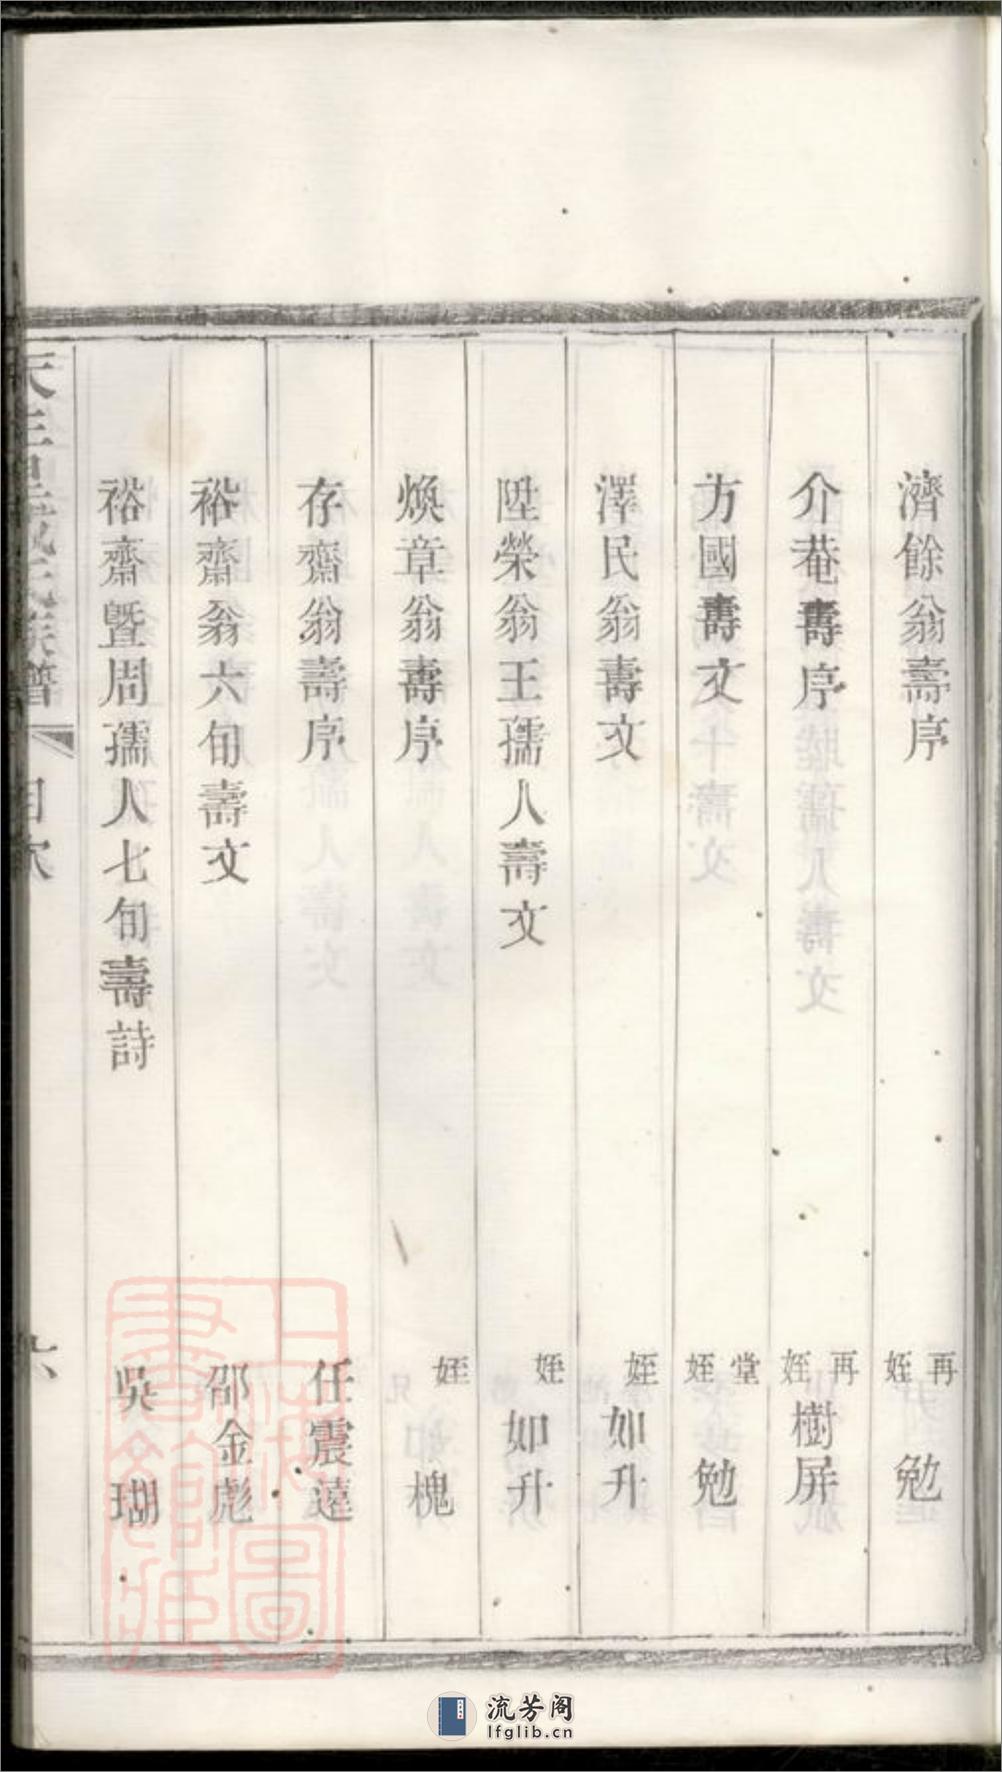 濟餘翁壽序 再姪 勉
介菴壽序 再姪 樹屏
方國壽文 堂姪 勉
澤民翁壽文 姪 如升
陞榮翁王孺人壽文 姪 如升
煥章翁壽序 姪 槐
存齋翁壽序 任震遠
裕齋翁六旬壽文 邵金彪
裕齋暨周孺人七旬壽詩 吳瑚
族譜 目次 六
上海圖書館藏
流芳阁
lfglib.cn